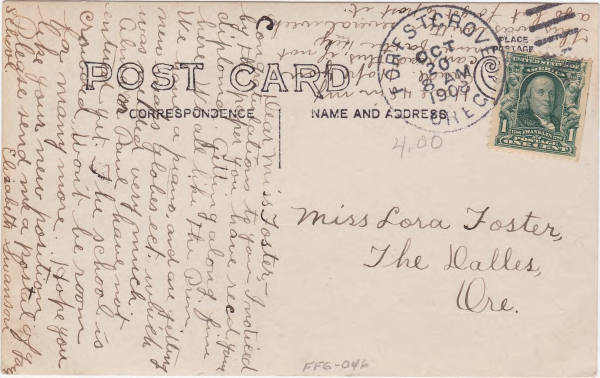 POST CARD
CORRESPONDENCE
NAME AND ADDRESS
PLACE
POSTAGE
FOREST GROVE
OCT
20
8 AM
1909
OREG.
1 FRANKLIN 1
POSTAGE
ONE CENT
4.00
Dear Miss Foster,-
Congratulations to you I noticed
by the paper you have recd your
diploma. Getting along fine
here. Would like The Prin.
We have a piano, and are getting
new maps globes ect. which
was needed very much
Alma or Paul have not
entered yet. The school is
crowded, Won't be room
for many more. Hope you
like your new position.
Please send me a Postal of The
School. Elizabeth Swanson
Miss Lora Foster,
The Dalles,
Ore.
FFG-046